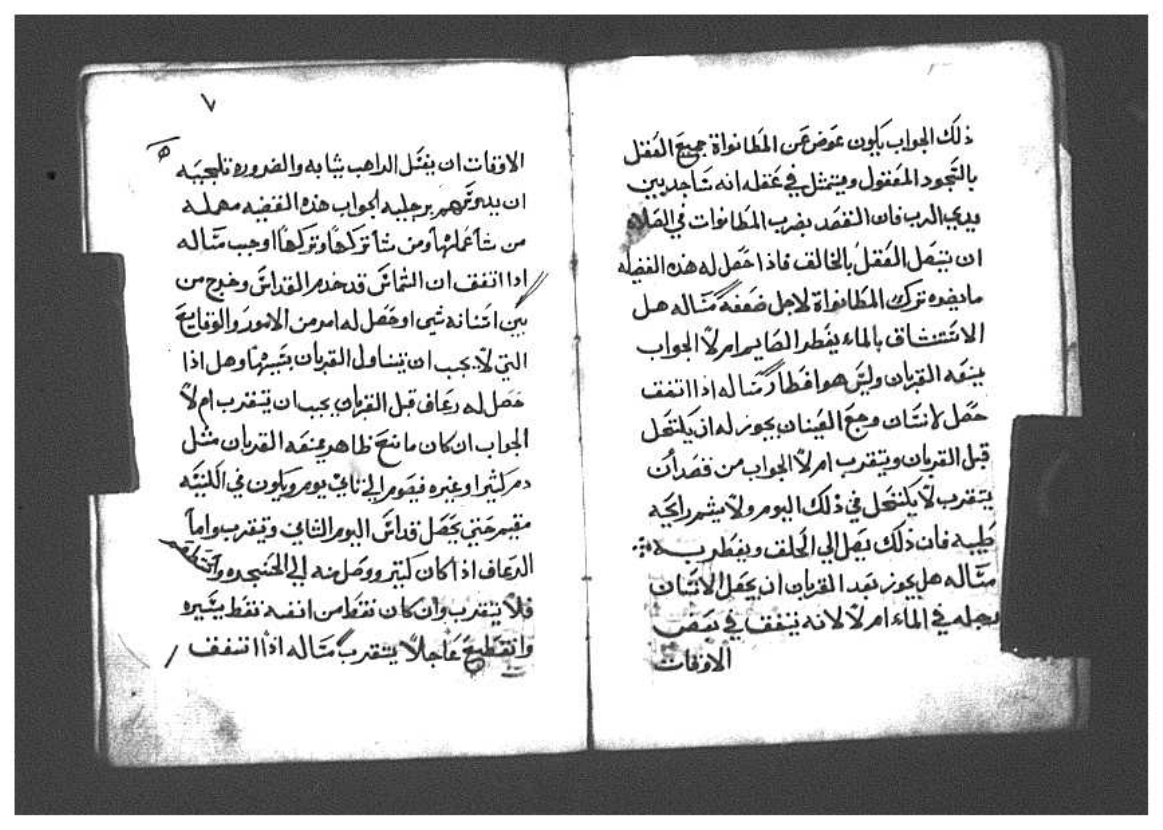 ذلك الجواب يكون عوض عن المطانواة جميع العقل
بالسجود المعقول ويتمثل في عقله انه ساجد بين
يدي الرب فان القصد بضرب المطانوات في الصلاه
ان يتصل العقل بالخالق فاذا حصل له هذه الفضله
ما يضره ترك المطانواة لاجل ضعفه مساله هل
الاستنشاق بالماء يفطر الصايم ام لا الجواب
يمنعه القربان وليس هو افطار مساله اذا اتفق
حصل لانسان وجع العينان يجوز له ان يكتحل
قبل القربان ويتقرب ام لا الجواب من قصد ان
يتقرب لا يكتحل في ذلك اليوم ولا يشم رايحه
طيبه فان ذلك يصل الي الحلق ويفطر به
مساله هل يجوز بعد القربان ان يجعل الانسان
رجله في الماء ام لا لانه يتفق في بعض
الاوقات
٧
الاوقات ان يغسل الراهب ثيابه والضروره تلجيه
ان يدوسهم برجليه الجواب هذه القضيه مهمله
من شا عملها ومن شا تركها وتركها اوجب مساله
اذا اتفق ان الشماس قد خدم القداس وخرج من
بين اسنانه شي او حصل له امر من الامور والوقايع
التي لا يجب ان يتناول القربان بسببها وهل اذا
حصل له رعاف قبل القربان يجب ان يتقرب ام لا
الجواب ان كان مانع ظاهر يمنعه القربان مثل
دم كثير او غيره فيصوم الي ثاني يوم ويكون في الكنيسه
مقيم حتي يحصل قداس اليوم الثاني ويتقرب واما
الرعاف اذا كان كثير ووصل منه الي الحنجره
فلا يتقرب وان كان نقط من انفه نقط يسيره
وانقطع عاجلا يتقرب مساله اذا اتفق